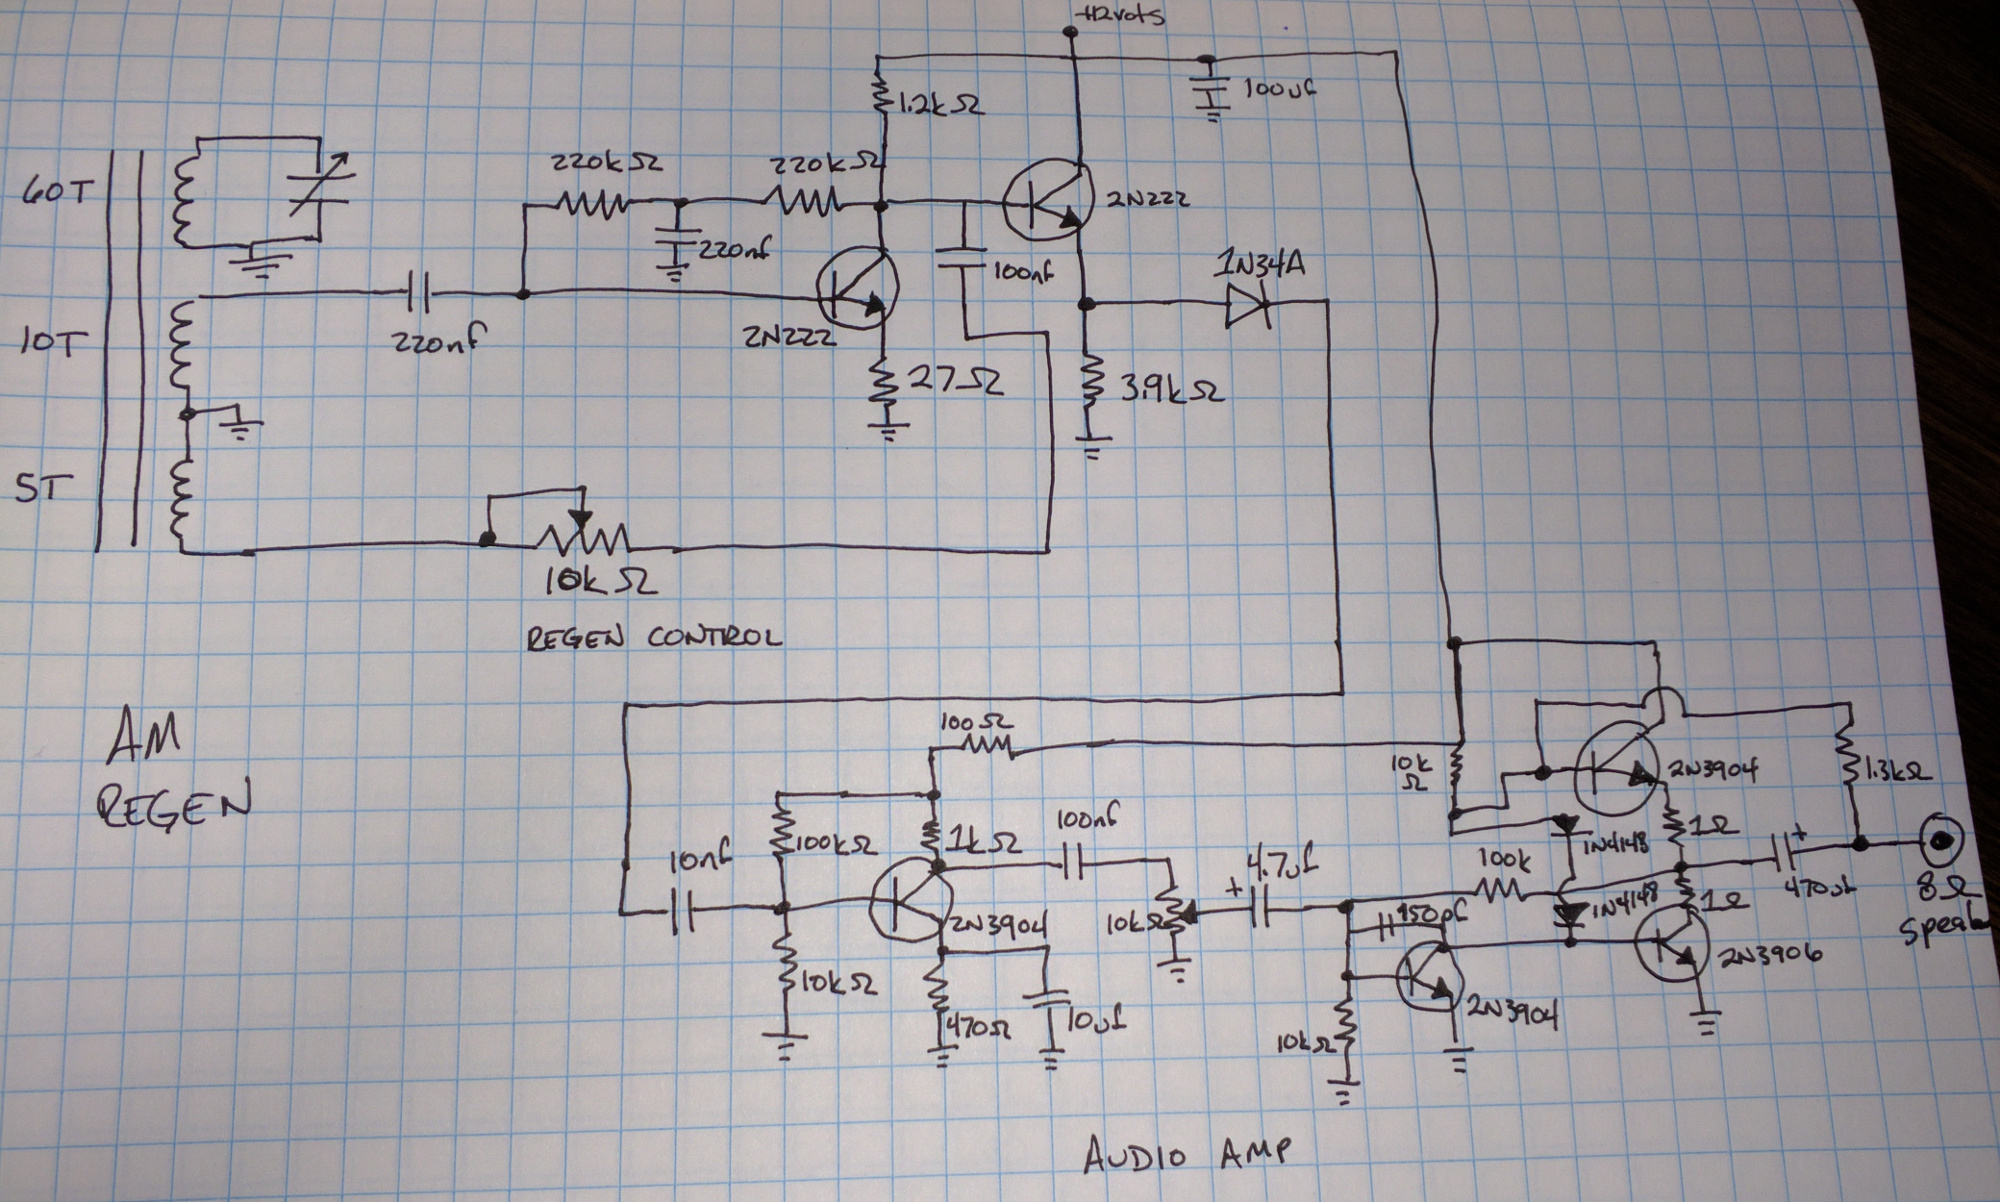 +12volts
1.2kΩ
100uf
60T
220kΩ
220kΩ
2N222
220nf
100nf
1N34A
10T
220nf
2N222
27Ω
3.9kΩ
5T
10kΩ
REGEN CONTROL
AM
REGEN
100Ω
10k
Ω
2N3904
1.3kΩ
10nf
100kΩ
1kΩ
100nf
1N4148
1Ω
4.7uf
100k
470uf
8Ω
Speaker
2N3904
10kΩ
1N4148
1Ω
10kΩ
470Ω
10uf
10kΩ
2N3904
2N3906
AUDIO AMP